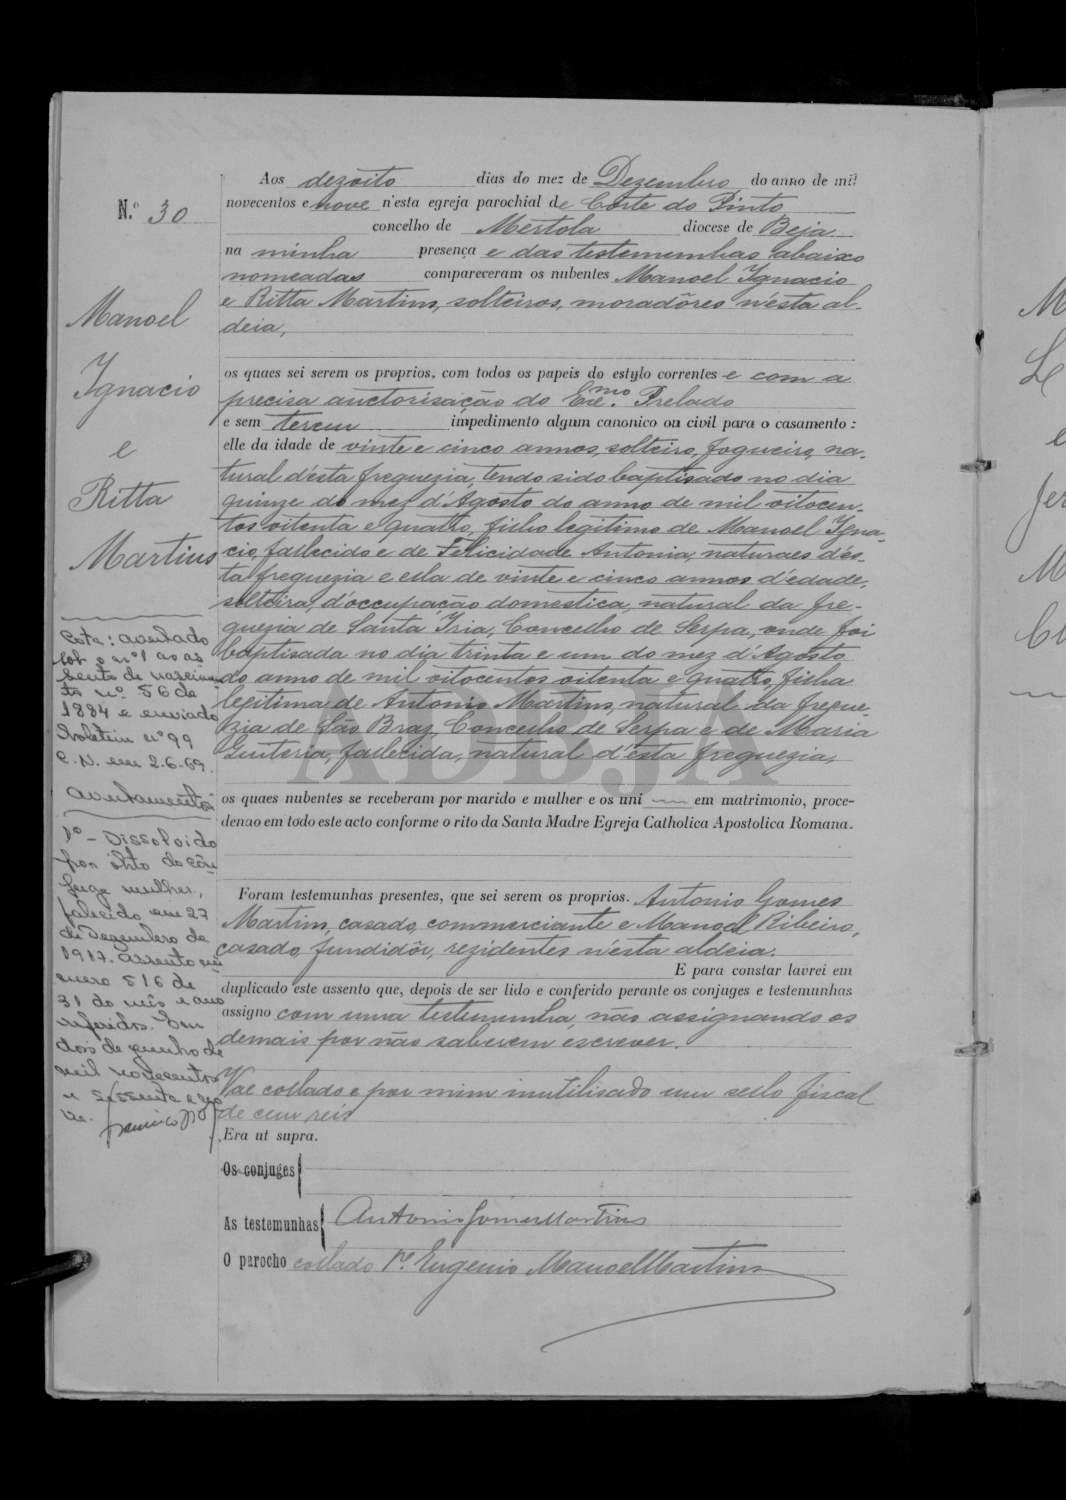 Aos dezoito dias do mez de Dezembro do anno de mil
novecentos e nove n'esta egreja parochial de Corte do Pinto
concelho de Mertola diocese de Beja
na minha presença e das testemunhas abaixo
nomeadas compareceram os nubentes Manoel Ignacio
e Ritta Martins, solteiros, moradôres n'ésta al-
deia,
os quaes sei serem os proprios, com todos os papeis do estylo correntes e com a
precisa auctorisação do Exe.mo Prelado
e sem terem impedimento algum canonico ou civil para o casamento:
elle da idade de vinte e cinco annos, solteiro, fogueiro, na-
tural d'ésta freguezia, tendo sido baptisado no dia
quinze do mez d'Agosto do anno de mil oitocen-
tos oitenta e quatro, filho legitimo de Manoel Igna-
cio, fallecido e de Felicidade Antonia, naturaes d'és-
ta freguezia e ella de vinte e cinco annos d'edade,
solteira, d'occupação domestica, natural da fre-
guezia de Santa Iria, Concelho de Serpa, onde foi
baptisada no dia trinta e um do mez d'Agosto
do anno de mil oitocentos oitenta e quatro, filha
legitima de Antonio Martins, natural da fregue-
zia de São Braz, Concelho de Serpa e de Maria
Guiteria, fallecida, natural d'ésta freguezia,
os quaes nubentes se receberam por marido e mulher e os uni em matrimonio, proce-
dendo em todo este acto conforme o rito da Santa Madre Egreja Catholica Apostolica Romana.
Foram testemunhas presentes, que sei serem os proprios. Antonio Gomes
Martins, casado, commerciante e Manoel Ribeiro,
casado, fundidôr, rezidentes n'ésta aldeia.
E para constar lavrei em
duplicado este assento que, depois de ser lido e conferido perante os conjuges e testemunhas
assigno com uma testemunha, não assignando os
demais por não saberem escrever.
Vae collado e por mim inutilisado um sello fiscal
de cem reis
Era ut supra.
Os conjuges
As testemunhas Antonio Gomes Martins
O parocho collado P.e Eugenio Manoel Martins
N.º 30
Manoel
Ignacio
e
Ritta
Martins
Cota: averbado
sob o nº 1 ao as
sento de nascimen
to nº 56 de
1884 e enviado
boletim nº 99
C.N. em 2.6.69.
Averbamentos
1º - Dissolvido
por óbito do côn
juge mulher,
falecido em 27
de Dezembro de
1917. Assento nú
mero 516 de
31 do mês e ano
referidos. Em
dois de junho de
mil novecentos
e sessenta e no
ve.
ADBJA